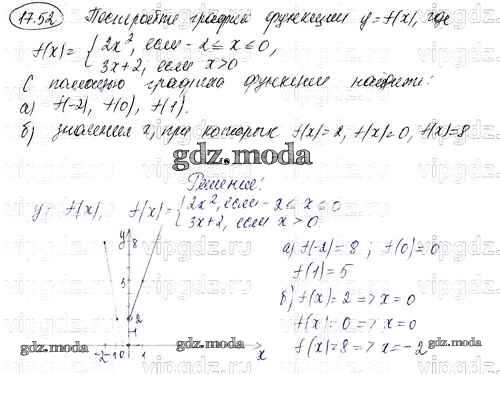 17.52 Постройте график функции y=f(x), где
f(x)= { 2x², если -2 ≤ x ≤ 0,
3x+2, если x>0
С помощью графика функции найти:
а) f(-2), f(0), f(1).
б) значения x, при которых f(x)=2, f(x)=0, f(x)=8
gdz.moda
Решение:
y= f(x), f(x)= { 2x², если -2 ≤ x ≤ 0
3x+2, если x>0
y
8
5
2
1
-2 -1 0 1 x
а) f(-2)=8; f(0)=0
f(1)=5
б) f(x)=2 => x=0
f(x)=0 => x=0
f(x)=8 => x=-2
gdz.moda
gdz.moda